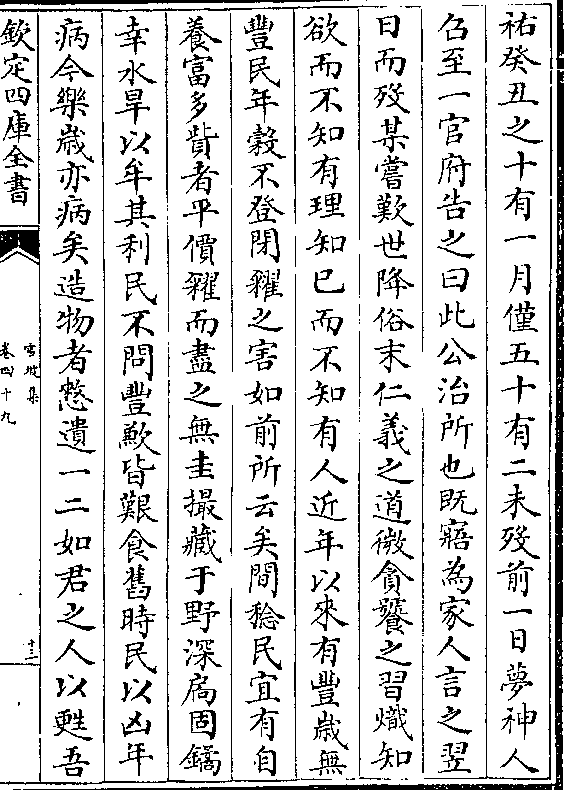 祐癸丑之十有一月僅五十有二未歿前一日夢神人
召至一官府告之曰此公治所也既寤為家人言之翌
日而歿某嘗歎世降俗末仁義之道微貪饕之習熾知
欲而不知有理知已而不知有人近年以來有豐歲無
豐民年糓不登閉糴之害如前所云矣間稔民宜有自
養富多貲者平價糴而盡之無圭撮藏于野深扃固鐍
幸水旱以牟其利民不問豐歉皆艱食舊時民以凶年
病今樂歲亦病矣造物者憖遺一二如君之人以甦吾
欽定四庫全書
雪坡集
卷四十九
十三